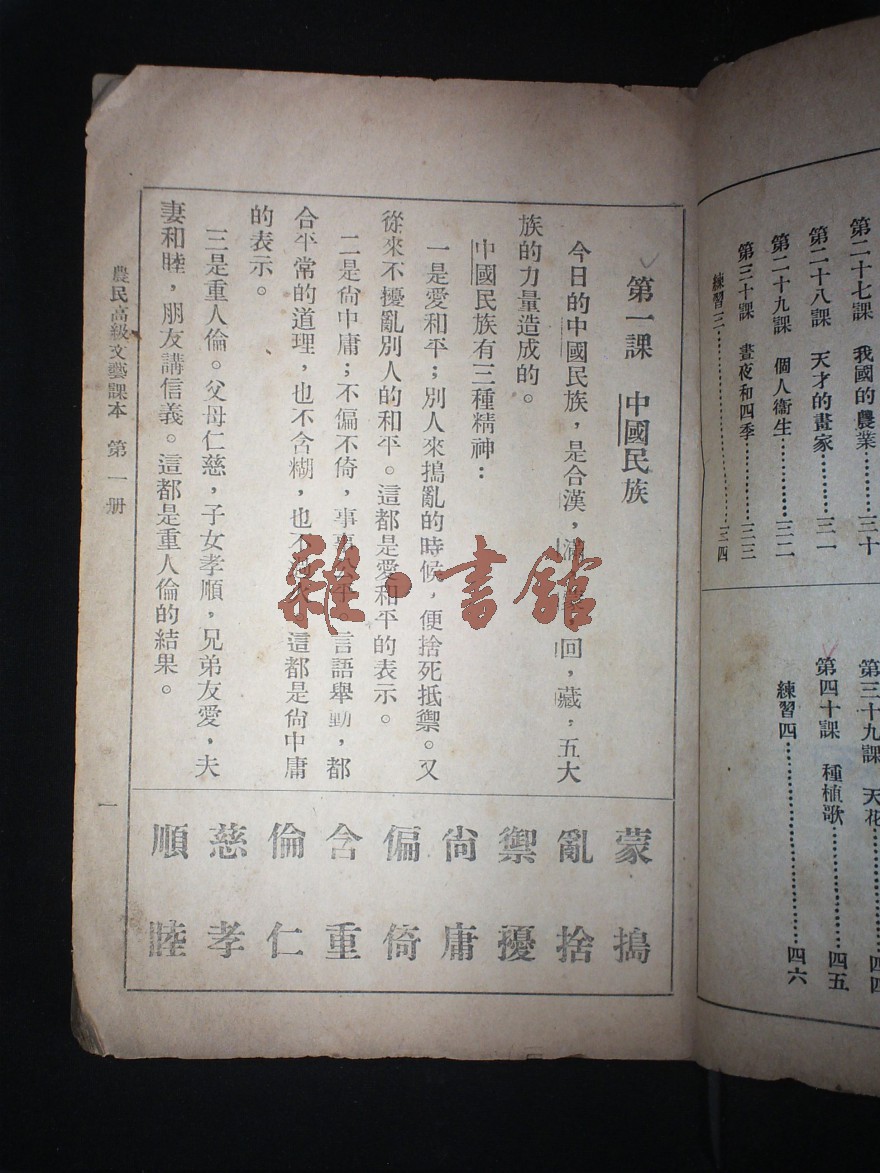 第二十七課　我國的農業………三十
第二十八課　天才的畫家………三一
第二十九課　個人衞生…………三二
第三十課　晝夜和四季…………三三
練習三……………………………三四
第三十九課　天花………………四四
第四十課　種植歌………………四五
練習四……………………………四六
第一課　中國民族
今日的中國民族，是合漢，滿，回，藏，五大
族的力量造成的。
中國民族有三種精神：
一是愛和平；別人來搗亂的時候，便捨死抵禦。又
從來不擾亂別人的和平。這都是愛和平的表示。
二是尙中庸；不偏不倚，事事平。言語舉動，都
合平常的道理，也不含糊，也不。這都是尙中庸
的表示。
三是重人倫。父母仁慈，子女孝順，兄弟友愛，夫
妻和睦，朋友講信義。這都是重人倫的結果。
蒙　搗
亂　捨
禦　擾
尙　庸
偏　倚
含　重
倫　仁
慈　孝
順　睦
農民高級文藝課本　第一册
一
雜·書館